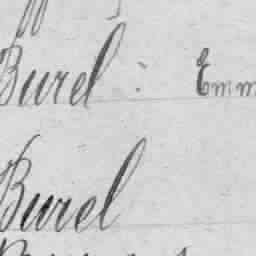 Burel : Emm
Burel